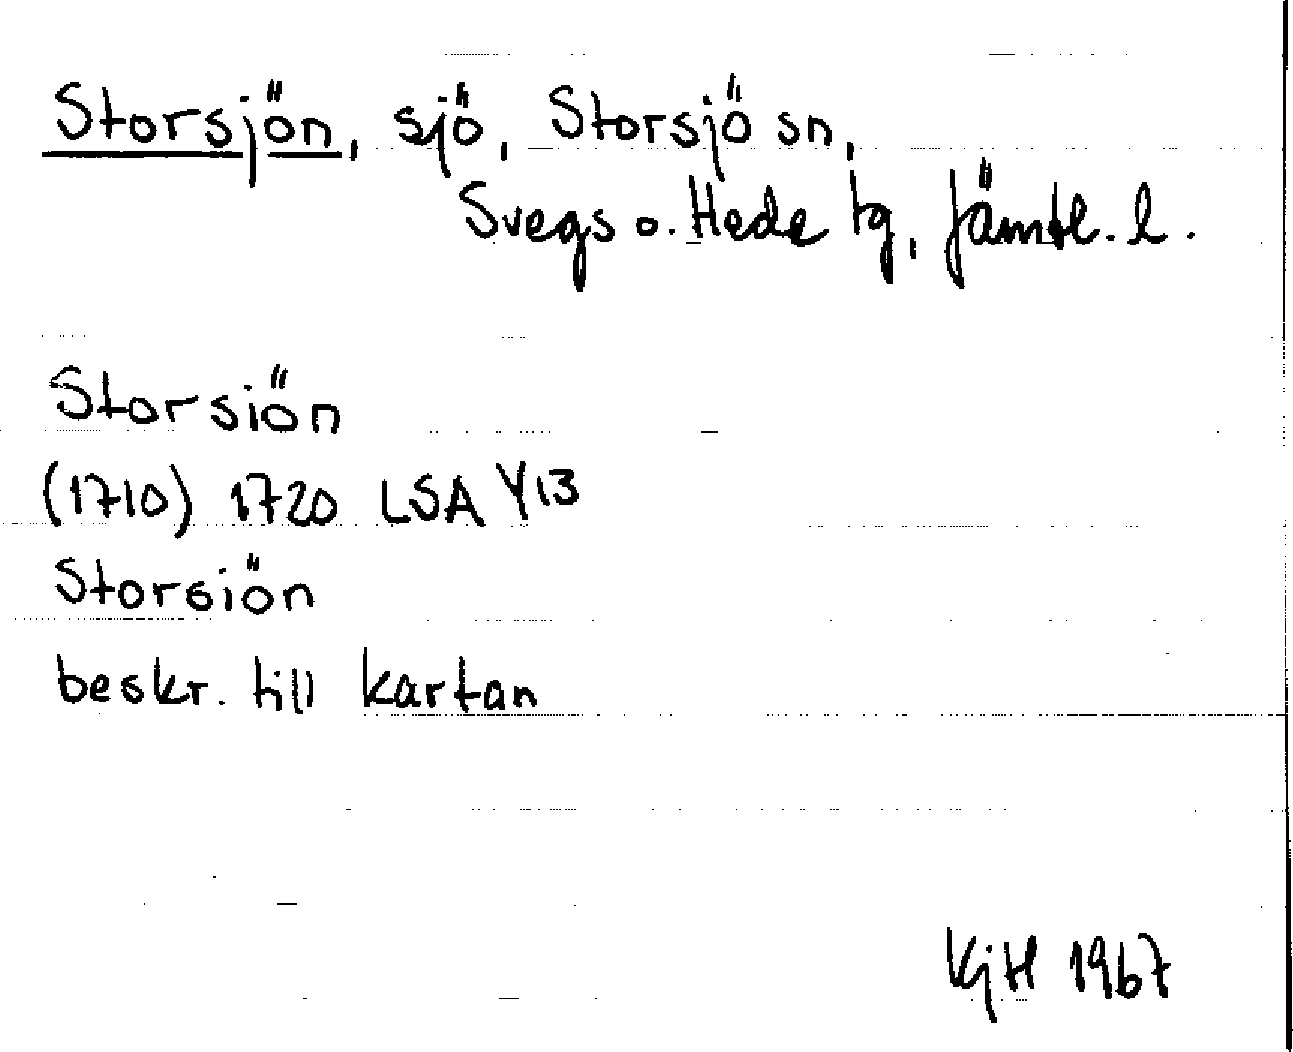 Storsjön, sjö, Storsjö sn,
Svegs o. Hede tg, Jämtl. l.
Storsiön
(1710) 1720 LSA Y13
Storsiön
beskr. till kartan
KjH 1967